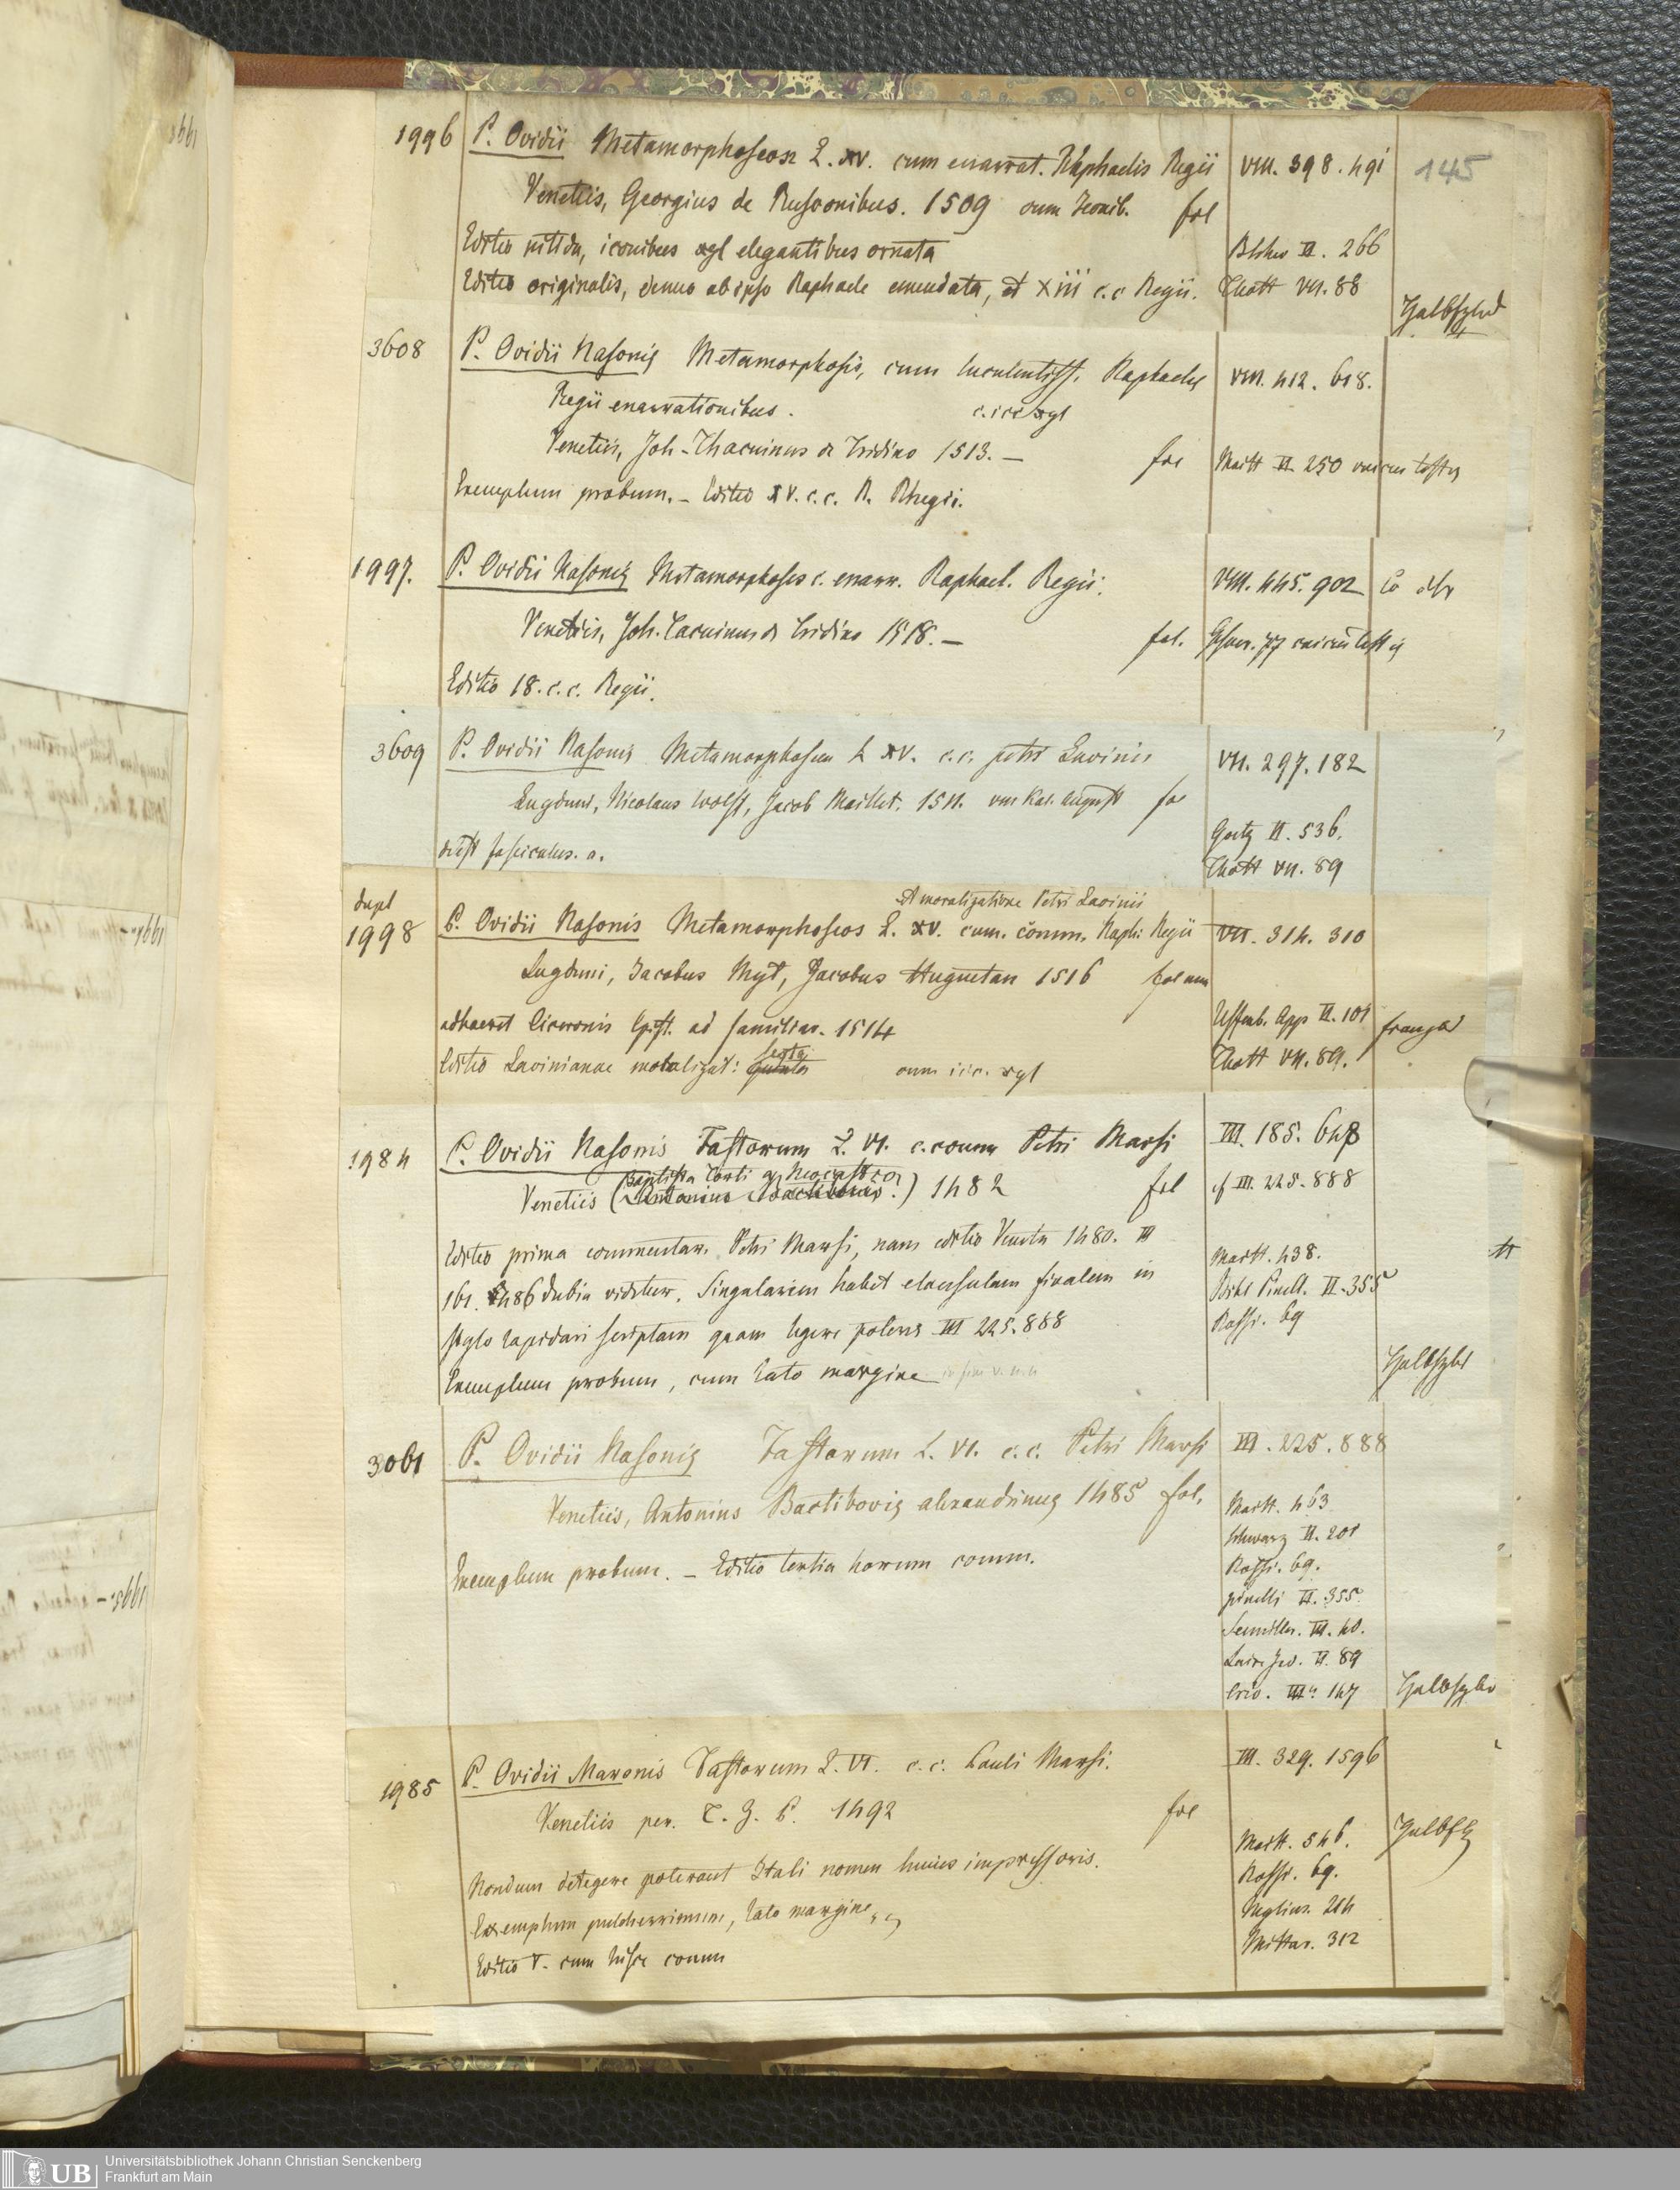 145
1996 P. Ovidii Metamorphoseon L. xv. cum enarrat. Raphaelis Regii VIII. 398. 491
Venetiis, Georgius de Rusconibus. 1509 cum Iconib. fol
Editio nitida, iconibus xyl elegantibus ornata II. 266
Editio originalis, denuo ab ipso Raphaele emendata, et xiii c.c Regii. Thott VII. 88
Halbfzbd
3608 P. Ovidii Nasonis Metamorphosis, cum luculentiss. Raphaelis VIII. 412. 618.
Regii enarrationibus. c. icc xyl
Venetiis, Joh. Thacuinus de Tridino 1513. — fol Maitt II. 250 unicus testis
Exemplum probum. – Editio XV. c. c. R. Rhegii.
1997. P. Ovidii Nasonis Metamorphoses c. enarr. Raphael. Regii. VIII. 445. 902
Venetiis, Joh. Tacuinus de Tridino 1518. — fol. Gesner. unicus testis
Editio 18. c. c. Regii.
3609 P. Ovidii Nasonis Metamorphoseon L xv. c. c. petri Lavinii VII. 297. 182
Lugduni, Nicolaus Wolff, Jacob Maillet. 1511. VIII Kal. August fol
deest fasciculus. a. Goetz II. 536.
Thott VII. 89
dupl et moralizatione Petri Lavinii
1998 P. Ovidii Nasonis Metamorphoseos L. xv. cum. comm. Raph: Regii VII. 314. 310
Lugduni, Jacobus Myt, Jacobus Huguetan 1516 fol min
adhaeret Ciceronis Epist. ad familiar. 1514 Uffenb. App II. 101 franzbd
Editio Lavinianae moralizat: sexta cum icc. xyl Thott VII. 89.
1984 P. Ovidii Nasonis Fastorum L. VI. c. comm Petri Marsi III. 185. 648
Baptista Torti a Neocastro
Venetiis (Antonius Bactibovis.) 1482 fol cf III. 225. 888
Editio prima commentar. Petri Marsi, nam editio Veneta 1480. III Maitt. 438.
161. 486 dubia videtur. Singularem habet clausulam finalem in Bibl Pinell. II. 355
stylo lapidari scriptam quam legere poteris III 225. 888 Rossi. 69
Exemplum probum, cum lato margine Halbfzbd
3061 P. Ovidii Nasonis Fastorum L. VI. c. c. Petri Marsi III. 225. 888
Venetiis, Antonius Bactibovis alexandrinus 1485 fol. Maitt. 463
Schwarz II. 201
Exemplum probum. – Editio tertia horum comm. Rossi. 69.
pinelli II. 355.
Seemiller. III. 40.
Laire Ind. II. 89
Halbfzbd
Crev. III. 147
1985 P. Ovidii Maronis Fastorum L. VI. c. c. Pauli Marsi. III. 329. 1596
Venetiis per. T. Z. P. 1492 fol
Maitt. 546. Halbfz
Nondum detegere poterant Itali nomen huius impressoris. Rossi. 69.
Exemplum pulcherrimum, lato margine 214
Editio V. cum hisce comm Mittar. 312
UB
Universitätsbibliothek Johann Christian Senckenberg
Frankfurt am Main